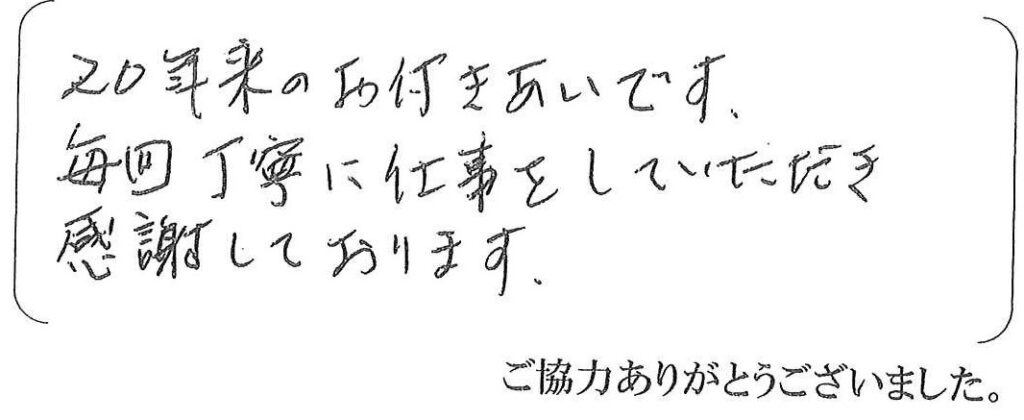 20年来のお付きあいです.
毎回丁寧に仕事をしていただき
感謝しております.
ご協力ありがとうございました。